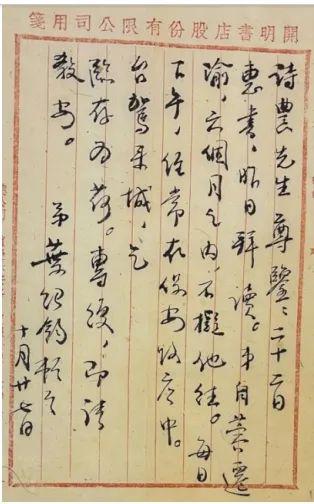 開明書店股份有限公司用箋
詩農先生尊鑒：二十二日
惠書，昨日拜讀。弟自蓉遷
渝，六個月之內，不擬他往。每日
下午，經常在保安路店中。
台駕來城，乞
臨存為荷。專復，即請
教安。
弟葉紹鈞頓首
十月廿七日